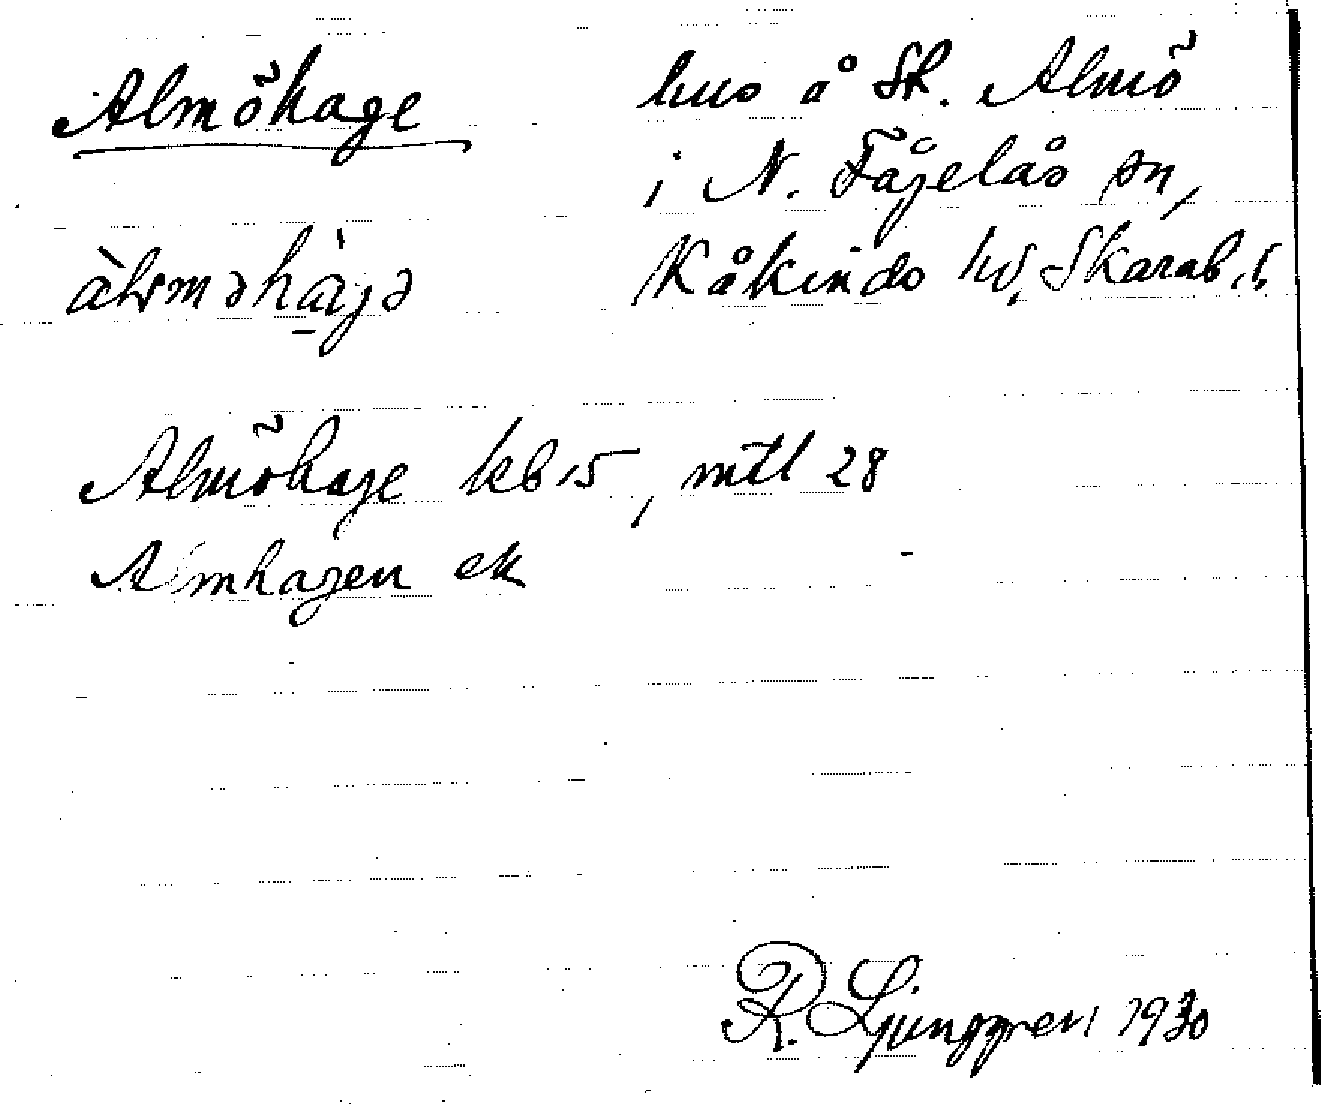 Almöhage
hus å Sk. Almö
i N. Fågelås sn,
Kåkinds hd, Skarab. l.
Almöhage kb 15, mtl 28
Almhagen ek
R. Ljunggren 1930